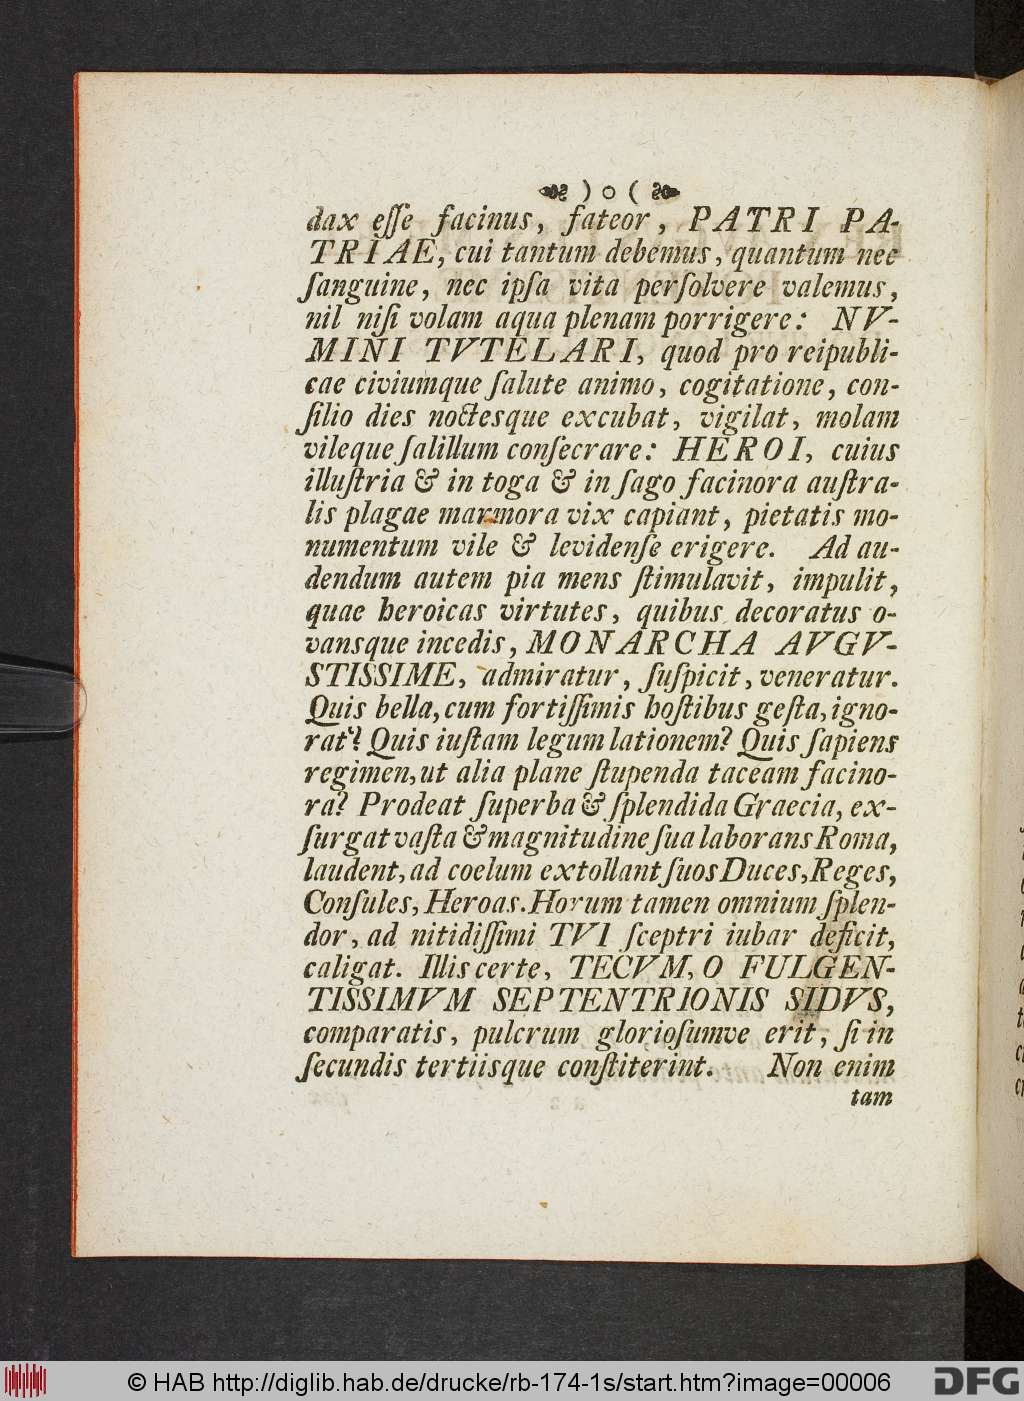 ) o (
dax eſſe facinus, fateor, PATRI PA-
TRIAE, cui tantum debemus, quantum nec
ſanguine, nec ipſa vita perſolvere valemus,
nil niſi volam aqua plenam porrigere: NV-
MINI TVTELARI, quod pro reipubli-
cae civiumque ſalute animo, cogitatione, con-
ſilio dies noctesque excubat, vigilat, molam
vileque ſalillum conſecrare: HEROI, cuius
illuſtria & in toga & in ſago facinora auſtra-
lis plagae marmora vix capiant, pietatis mo-
numentum vile & levidenſe erigere. Ad au-
dendum autem pia mens ſtimulavit, impulit,
quae heroicas virtutes, quibus decoratus o-
vansque incedis, MONARCHA AVGV-
STISSIME, admiratur, ſuſpicit, veneratur.
Quis bella, cum fortiſſimis hoſtibus geſta, igno-
rat? Quis iuſtam legum lationem? Quis ſapiens
regimen, ut alia plane ſtupenda taceam facino-
ra? Prodeat ſuperba & ſplendida Graecia, ex-
ſurgat vaſta & magnitudine ſua laborans Roma,
laudent, ad coelum extollant ſuos Duces, Reges,
Conſules, Heroas. Horum tamen omnium ſplen-
dor, ad nitidiſſimi TVI ſceptri iubar deficit,
caligat. Illis certe, TECVM, O FULGEN-
TISSIMVM SEPTENTRIONIS SIDVS,
comparatis, pulcrum glorioſumve erit, ſi in
ſecundis tertiisque conſtiterint. Non enim
tam
© HAB http://diglib.hab.de/drucke/rb-174-1s/start.htm?image=00006
DFG